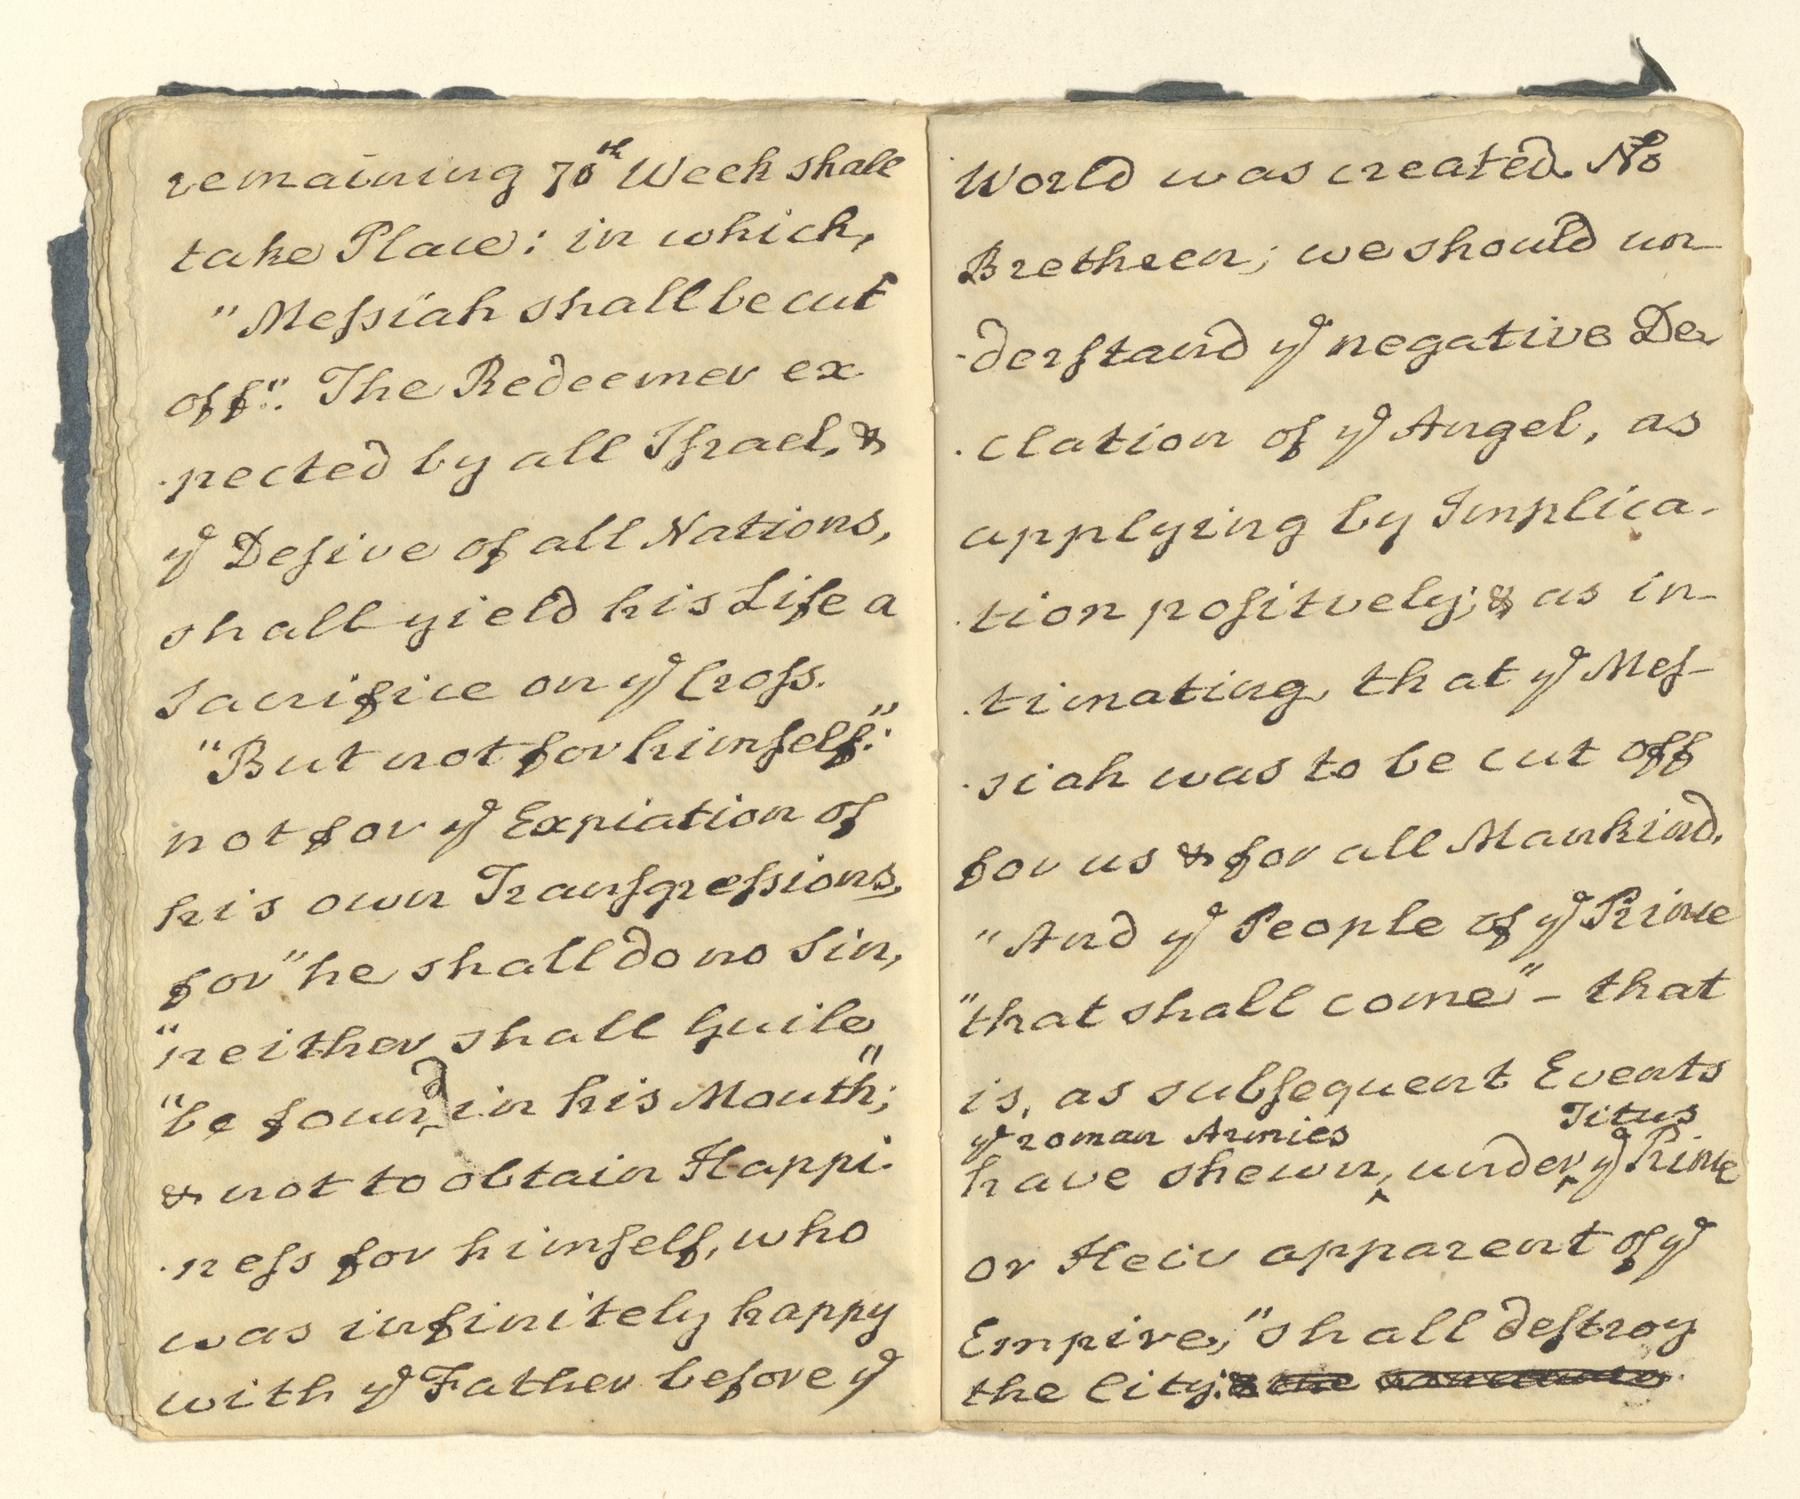 remaining 70th Week shall
take Place: in which,
"Meſsiah shall be cut
off". The Redeemer ex
-pected by all Iſrael, &
ye Deſire of all Nations,
shall yield his Life a
Sacrifice on ye Croſs.
"But not for himſelf":
not for ye Expiation of
his own Tranſgreſsions,
for "he shall do no Sin,
"neither shall Guile
"be found in his Mouth";
& not to obtain Happi-
-neſs for himſelf, who
was infinitely happy
with ye Father before ye
World was created. No
Brethren; we should un-
-derſtand ye negative De-
-clation of ye Angel, as
applying by Implica-
-tion poſitvely; & as in-
-timating, that ye Meſ-
-siah was to be cut off
for us & for all Mankind.
"And ye People of ye Prince
"that shall come" - that
is, as subſequent Events
ye roman Armies Titus
have shewn, under, ye Prince
or Heir apparent of ye
Empire, "shall deſtroy
the City: & the